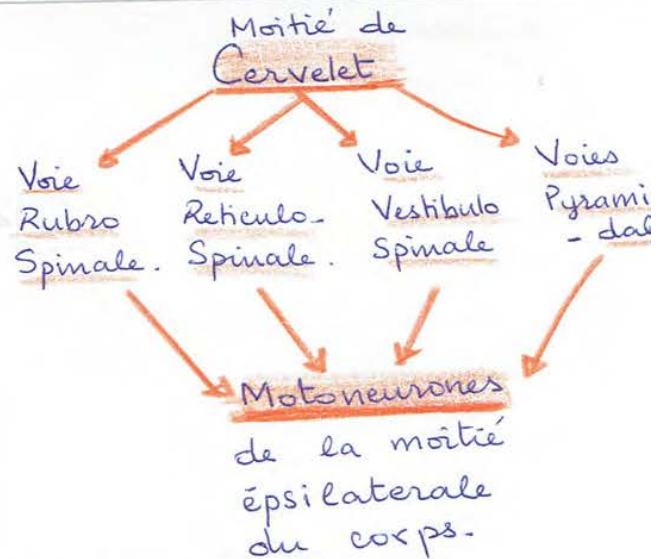 Moitié de
Cervelet
Voie
Rubro
Spinale.
Voie
Reticulo-
Spinale.
Voie
Vestibulo
Spinale
Voies
Pyrami
- dal
Motoneurones
de la moitié
épsilaterale
du corps.